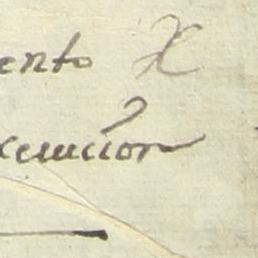 ento X
xecucion